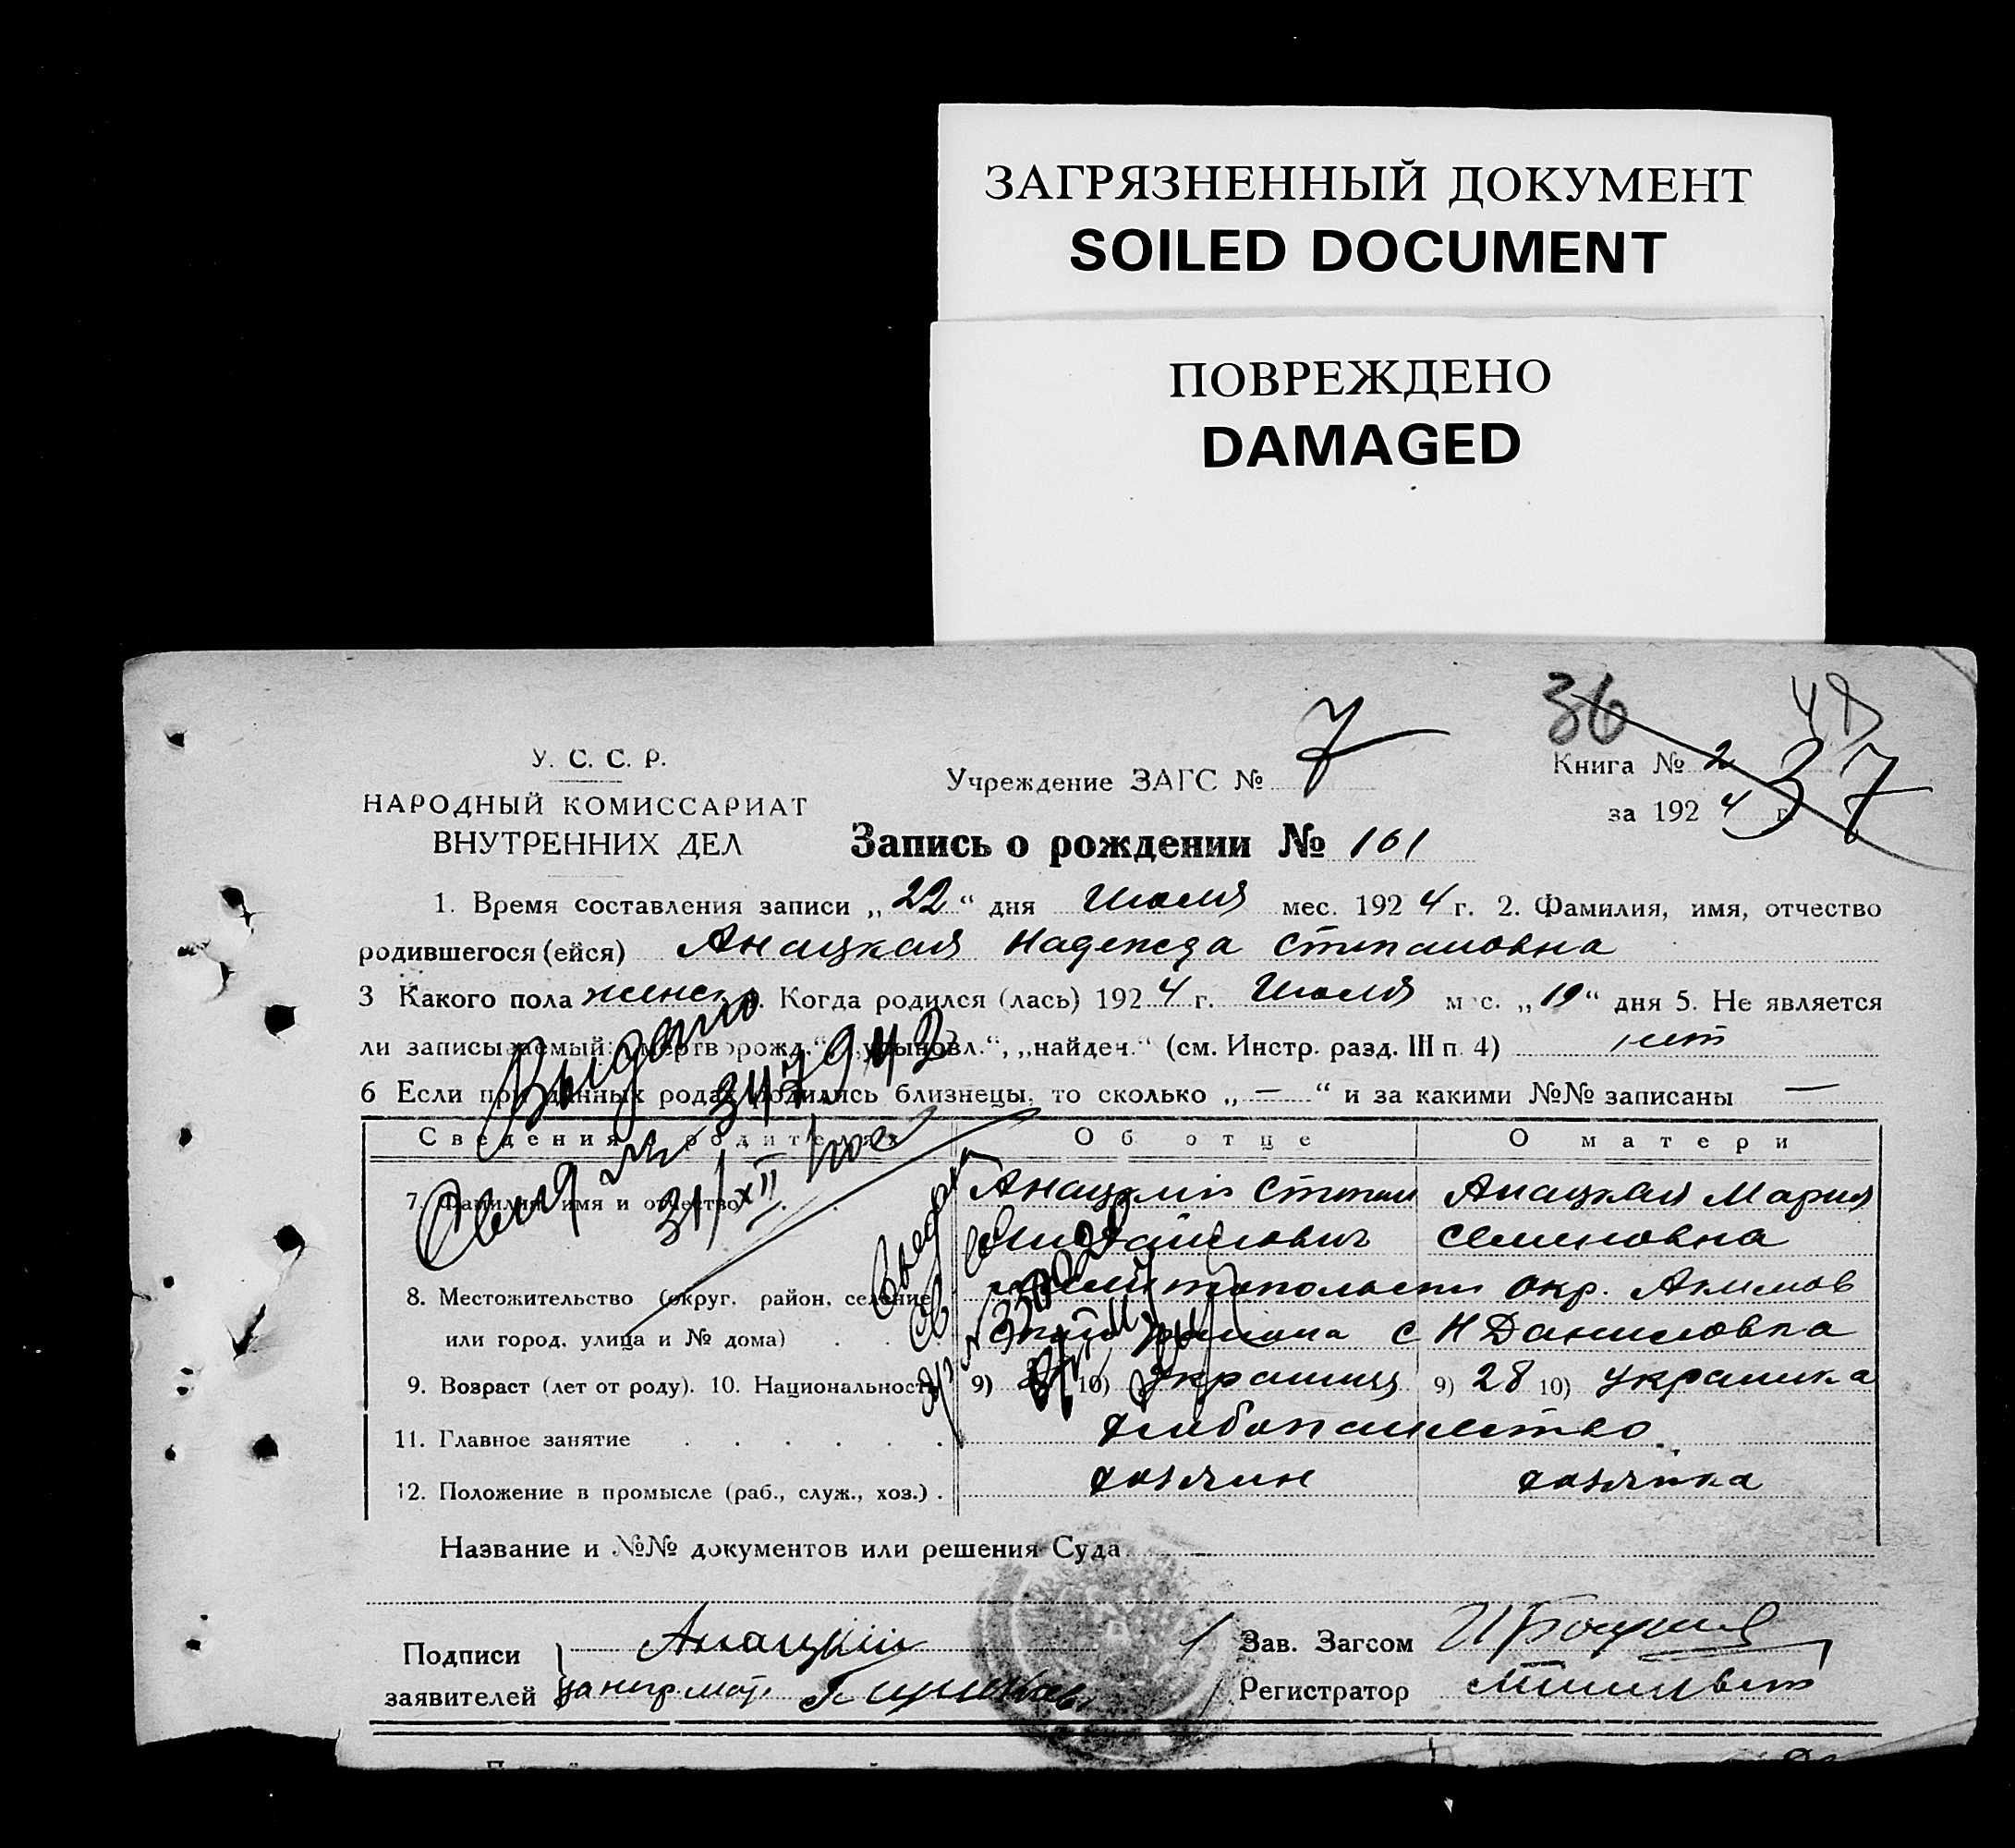 ЗАГРЯЗНЕННЫЙ ДОКУМЕНТ
SOILED DOCUMENT
ПОВРЕЖДЕНО
DAMAGED
36
48
37
У. С. С. Р.
НАРОДНЫЙ КОМИССАРИАТ
ВНУТРЕННИХ ДЕЛ
Учреждение ЗАГС № 7
Книга № 2
за 1924 г.
Запись о рождении № 161
1. Время составления записи „22“ дня Июля мес. 1924 г. 2. Фамилия, имя, отчество
родившегося (ейся) Анацкая Надежда Степановна
3 Какого пола женск. Когда родился (лась) 1924 г. Июля мес. „19“ дня 5. Не является
ли записываемый: „мертворожд.“, „усыновл.“, „найден.“ (см. Инстр. разд. III п. 4) нет
6 Если при данных родах родились близнецы, то сколько „—“ и за какими №№ записаны —
Выдано
31/XII
Сведения о родителях
Об отце
О матери
7. Фамилия, имя и отчество
Анацкий Степан
Анацкая Мария
Семеновна
8. Местожительство (округ, район, селение
или город, улица и № дома)
Мелитопольский окр. Акимов
ский района с Н Даниловка
9. Возраст (лет от роду). 10. Национальность
9) 10) Украинец 9) 28 10) Украинка
11. Главное занятие
хлебопашество
12. Положение в промысле (раб., служ., хоз.)
хозяин
хозяйка
Название и №№ документов или решения Суда —
Подписи
заявителей
Анацкий
Зав. Загсом
Регистратор